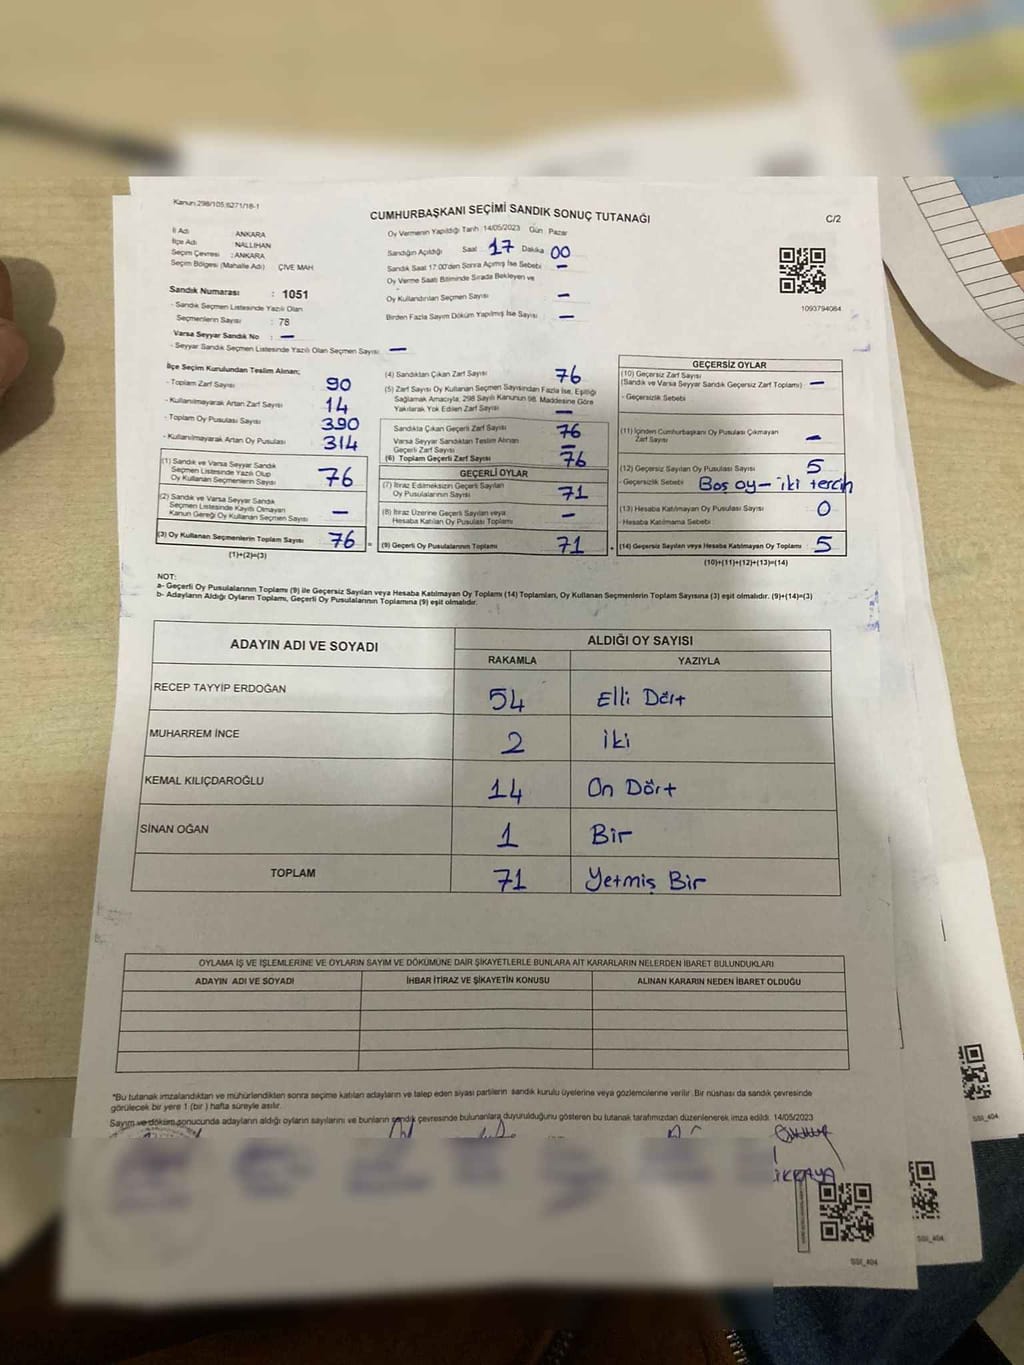 Kanun:298/105;6271/18-1
CUMHURBAŞKANI SEÇİMİ SANDIK SONUÇ TUTANAĞI
C/2
İl Adı : ANKARA
İlçe Adı : NALLIHAN
Seçim Çevresi : ANKARA
Seçim Bölgesi (Mahalle Adı) ÇİVE MAH
Sandık Numarası : 1051
- Sandık Seçmen Listesinde Yazılı Olan
Seçmenlerin Sayısı : 78
Varsa Seyyar Sandık No : —
- Seyyar Sandık Seçmen Listesinde Yazılı Olan Seçmen Sayısı : —
Oy Vermenin Yapıldığı Tarih 14/05/2023 Gün Pazar
Sandığın Açıldığı Saat 17 Dakika 00
Sandık Saat 17:00'den Sonra Açmış İse Sebebi —
Oy Verme Saati Bitiminde Sırada Bekleyen ve
Oy Kullandırılan Seçmen Sayısı —
Birden Fazla Sayım Döküm Yapılmış İse Sayısı —
1093794084
İlçe Seçim Kurulundan Teslim Alınan;
- Toplam Zarf Sayısı 90
- Kullanılmayarak Artan Zarf Sayısı 14
- Toplam Oy Pusulası Sayısı 390
- Kullanılmayarak Artan Oy Pusulası 314
(1) Sandık ve Varsa Seyyar Sandık
Seçmen Listesinde Yazılı Olup
Oy Kullanan Seçmenlerin Sayısı 76
(2) Sandık ve Varsa Seyyar Sandık
Seçmen Listesinde Kayıtlı Olmayan
Kanun Gereği Oy Kullanan Seçmen Sayısı —
(3) Oy Kullanan Seçmenlerin Toplam Sayısı 76 =
(1)+(2)=(3)
(4) Sandıktan Çıkan Zarf Sayısı 76
(5) Zarf Sayısı Oy Kullanan Seçmen Sayısından Fazla İse, Eşitliği
Sağlamak Amacıyla; 298 Sayılı Kanunun 98. Maddesine Göre
Yakılarak Yok Edilen Zarf Sayısı —
Sandıkta Çıkan Geçerli Zarf Sayısı 76
Varsa Seyyar Sandıktan Teslim Alınan
Geçerli Zarf Sayısı —
(6) Toplam Geçerli Zarf Sayısı 76
GEÇERLİ OYLAR
(7) İtiraz Edilmeksizin Geçerli Sayılan
Oy Pusulalarının Sayısı 71
(8) İtiraz Üzerine Geçerli Sayılan veya
Hesaba Katılan Oy Pusulası Toplamı —
(9) Geçerli Oy Pusulalarının Toplamı 71 +
GEÇERSİZ OYLAR
(10) Geçersiz Zarf Sayısı
(Sandık ve Varsa Seyyar Sandık Geçersiz Zarf Toplamı) —
- Geçersizlik Sebebi
(11) İçinden Cumhurbaşkanı Oy Pusulası Çıkmayan
Zarf Sayısı —
(12) Geçersiz Sayılan Oy Pusulası Sayısı 5
- Geçersizlik Sebebi Boş oy – iki tercih
(13) Hesaba Katılmayan Oy Pusulası Sayısı 0
- Hesaba Katılmama Sebebi
(14) Geçersiz Sayılan veya Hesaba Katılmayan Oy Toplamı 5
(10)+(11)+(12)+(13)=(14)
NOT:
a- Geçerli Oy Pusulalarının Toplamı (9) ile Geçersiz Sayılan veya Hesaba Katılmayan Oy Toplamı (14) Toplamları, Oy Kullanan Seçmenlerin Toplam Sayısına (3) eşit olmalıdır. (9)+(14)=(3)
b- Adayların Aldığı Oyların Toplamı, Geçerli Oy Pusulalarının Toplamına (9) eşit olmalıdır.
ADAYIN ADI VE SOYADI ALDIĞI OY SAYISI
RAKAMLA YAZIYLA
RECEP TAYYİP ERDOĞAN 54 Elli Dört
MUHARREM İNCE 2 İki
KEMAL KILIÇDAROĞLU 14 On Dört
SİNAN OĞAN 1 Bir
TOPLAM 71 Yetmiş Bir
OYLAMA İŞ VE İŞLEMLERİNE VE OYLARIN SAYIM VE DÖKÜMÜNE DAİR ŞİKAYETLERLE BUNLARA AİT KARARLARIN NELERDEN İBARET BULUNDUKLARI
ADAYIN ADI VE SOYADI İHBAR İTİRAZ VE ŞİKAYETİN KONUSU ALINAN KARARIN NEDEN İBARET OLDUĞU
*Bu tutanak imzalandıktan ve mühürlendikten sonra seçime katılan adayların ve talep eden siyasi partilerin sandık kurulu üyelerine veya gözlemcilerine verilir .Bir nüshası da sandık çevresinde
görülecek bir yere 1 (bir ) hafta süreyle asılır.
Sayım ve döküm sonucunda adayların aldığı oyların sayılarını ve bunların sandık çevresinde bulunanlara duyurulduğunu gösteren bu tutanak tarafımızdan düzenlenerek imza edildi. 14/05/2023
SSI_404
SSI_404
SSI_404